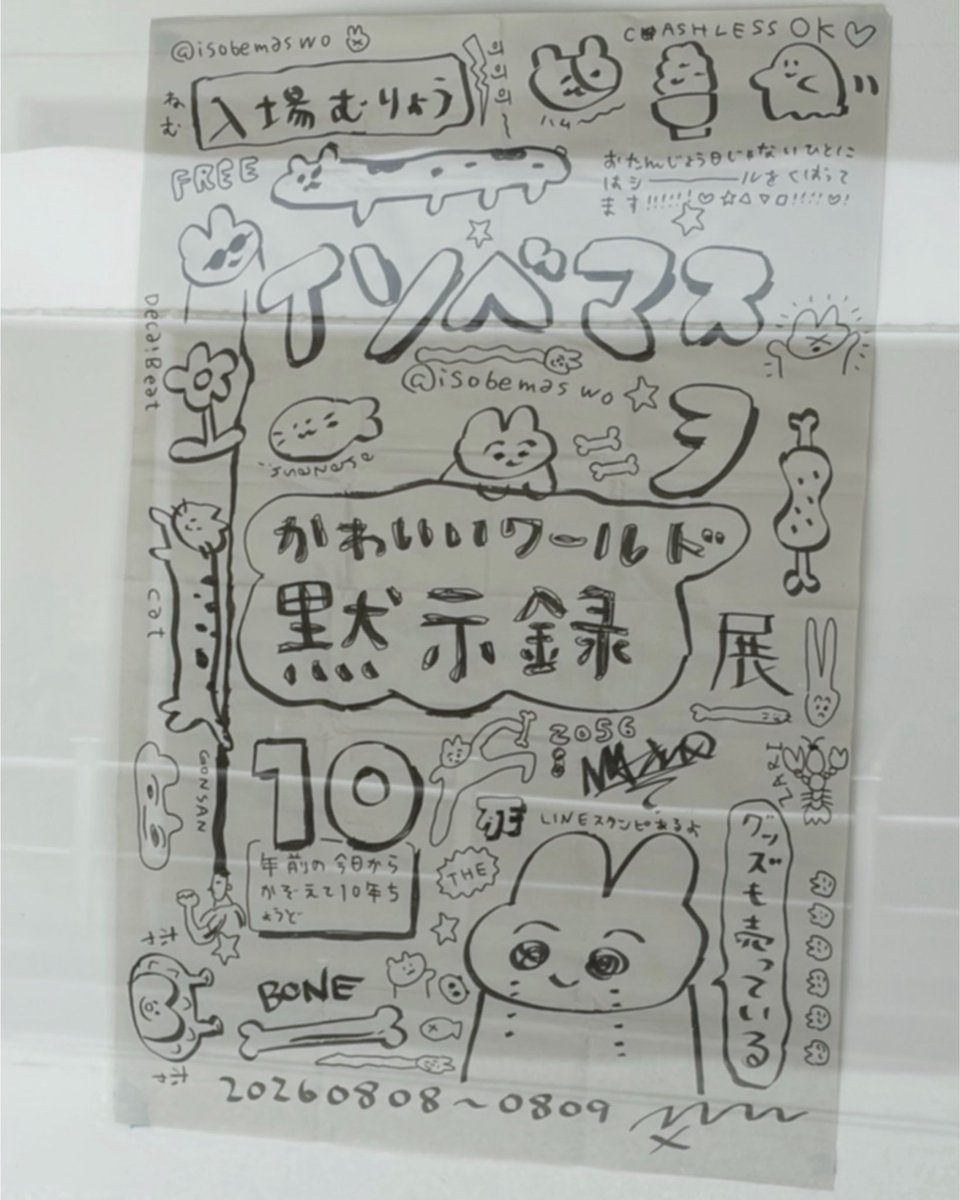 @isobemaswo
CASHLESS OK♡
ねむ
入場むりょう
ハム〜
FREE
おたんじょう日じゃないひとに
はシールをくばって
ます!!!!!!♡☆△▽□!!!!♡!
イソベマス
@isobemaswo
ヲ
DecaiBeat
かわいいワールド
黙示録
展
cat
2056
10
GONSAN
LINEスタンプあるよ
年前の今日から
かぞえて10年ち
ょうど
THE
グッズも売っている
BONE
20260808〜0809